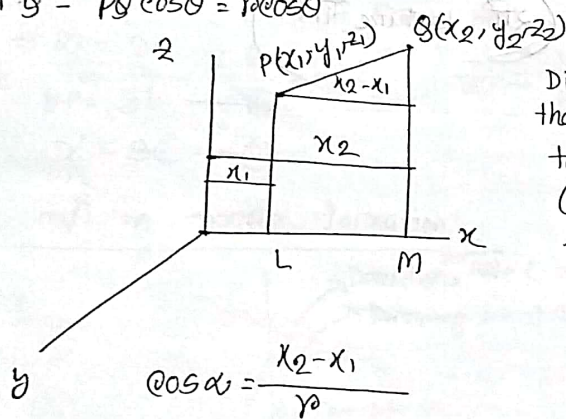 PQ cosθ = r cosθ
z
P(x₁, y₁, z₁)
Q(x₂, y₂, z₂)
x₂-x₁
x₂
x₁
x
L
M
y
cosα = x₂-x₁ / r